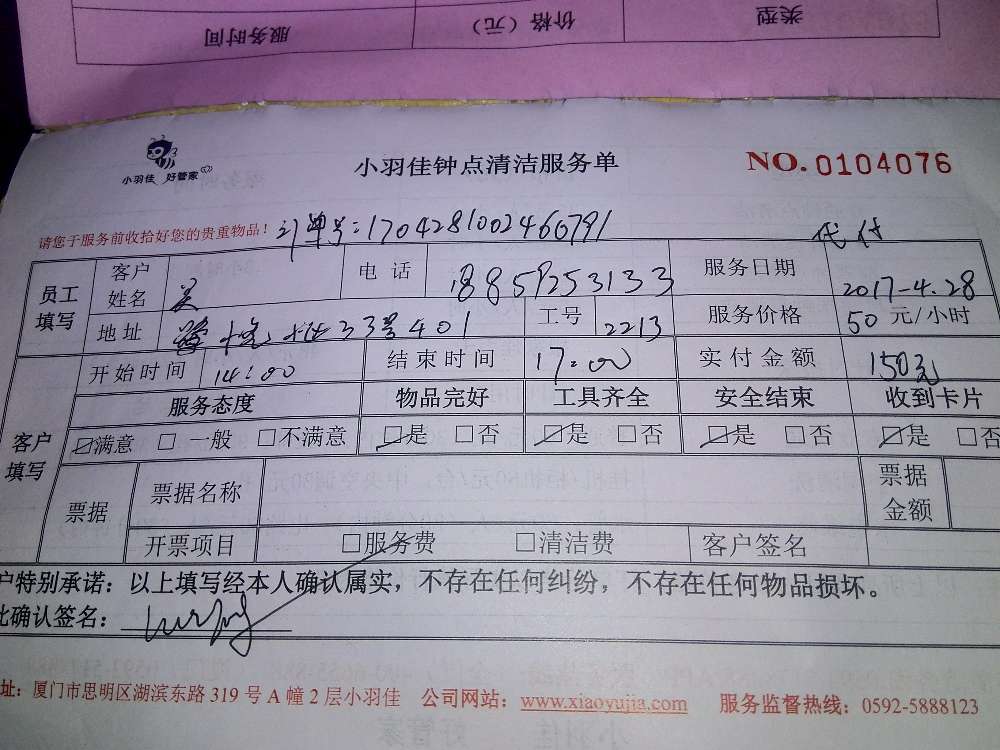 服务时间 价格（元） 类型
小羽佳 好管家
小羽佳钟点清洁服务单
NO.0104076
请您于服务前收拾好您的贵重物品！ 订单号:170428100246679​1 代付
员工填写 客户姓名 吴 电话 18859253133 服务日期 2017-4.28
地址 33号401 工号 2213 服务价格 50 元/小时
开始时间 14:00 结束时间 17:00 实付金额 150元
客户填写 服务态度 物品完好 工具齐全 安全结束 收到卡片
☑满意 □一般 □不满意 ☑是 □否 ☑是 □否 ☑是 □否 ☑是 □否
票据 票据名称 票据金额
开票项目 □服务费 □清洁费 客户签名
户特别承诺：以上填写经本人确认属实，不存在任何纠纷，不存在任何物品损坏。
此确认签名：
址：厦门市思明区湖滨东路 319 号 A 幢 2 层小羽佳 公司网站：www.xiaoyujia.com 服务监督热线：0592-5888123